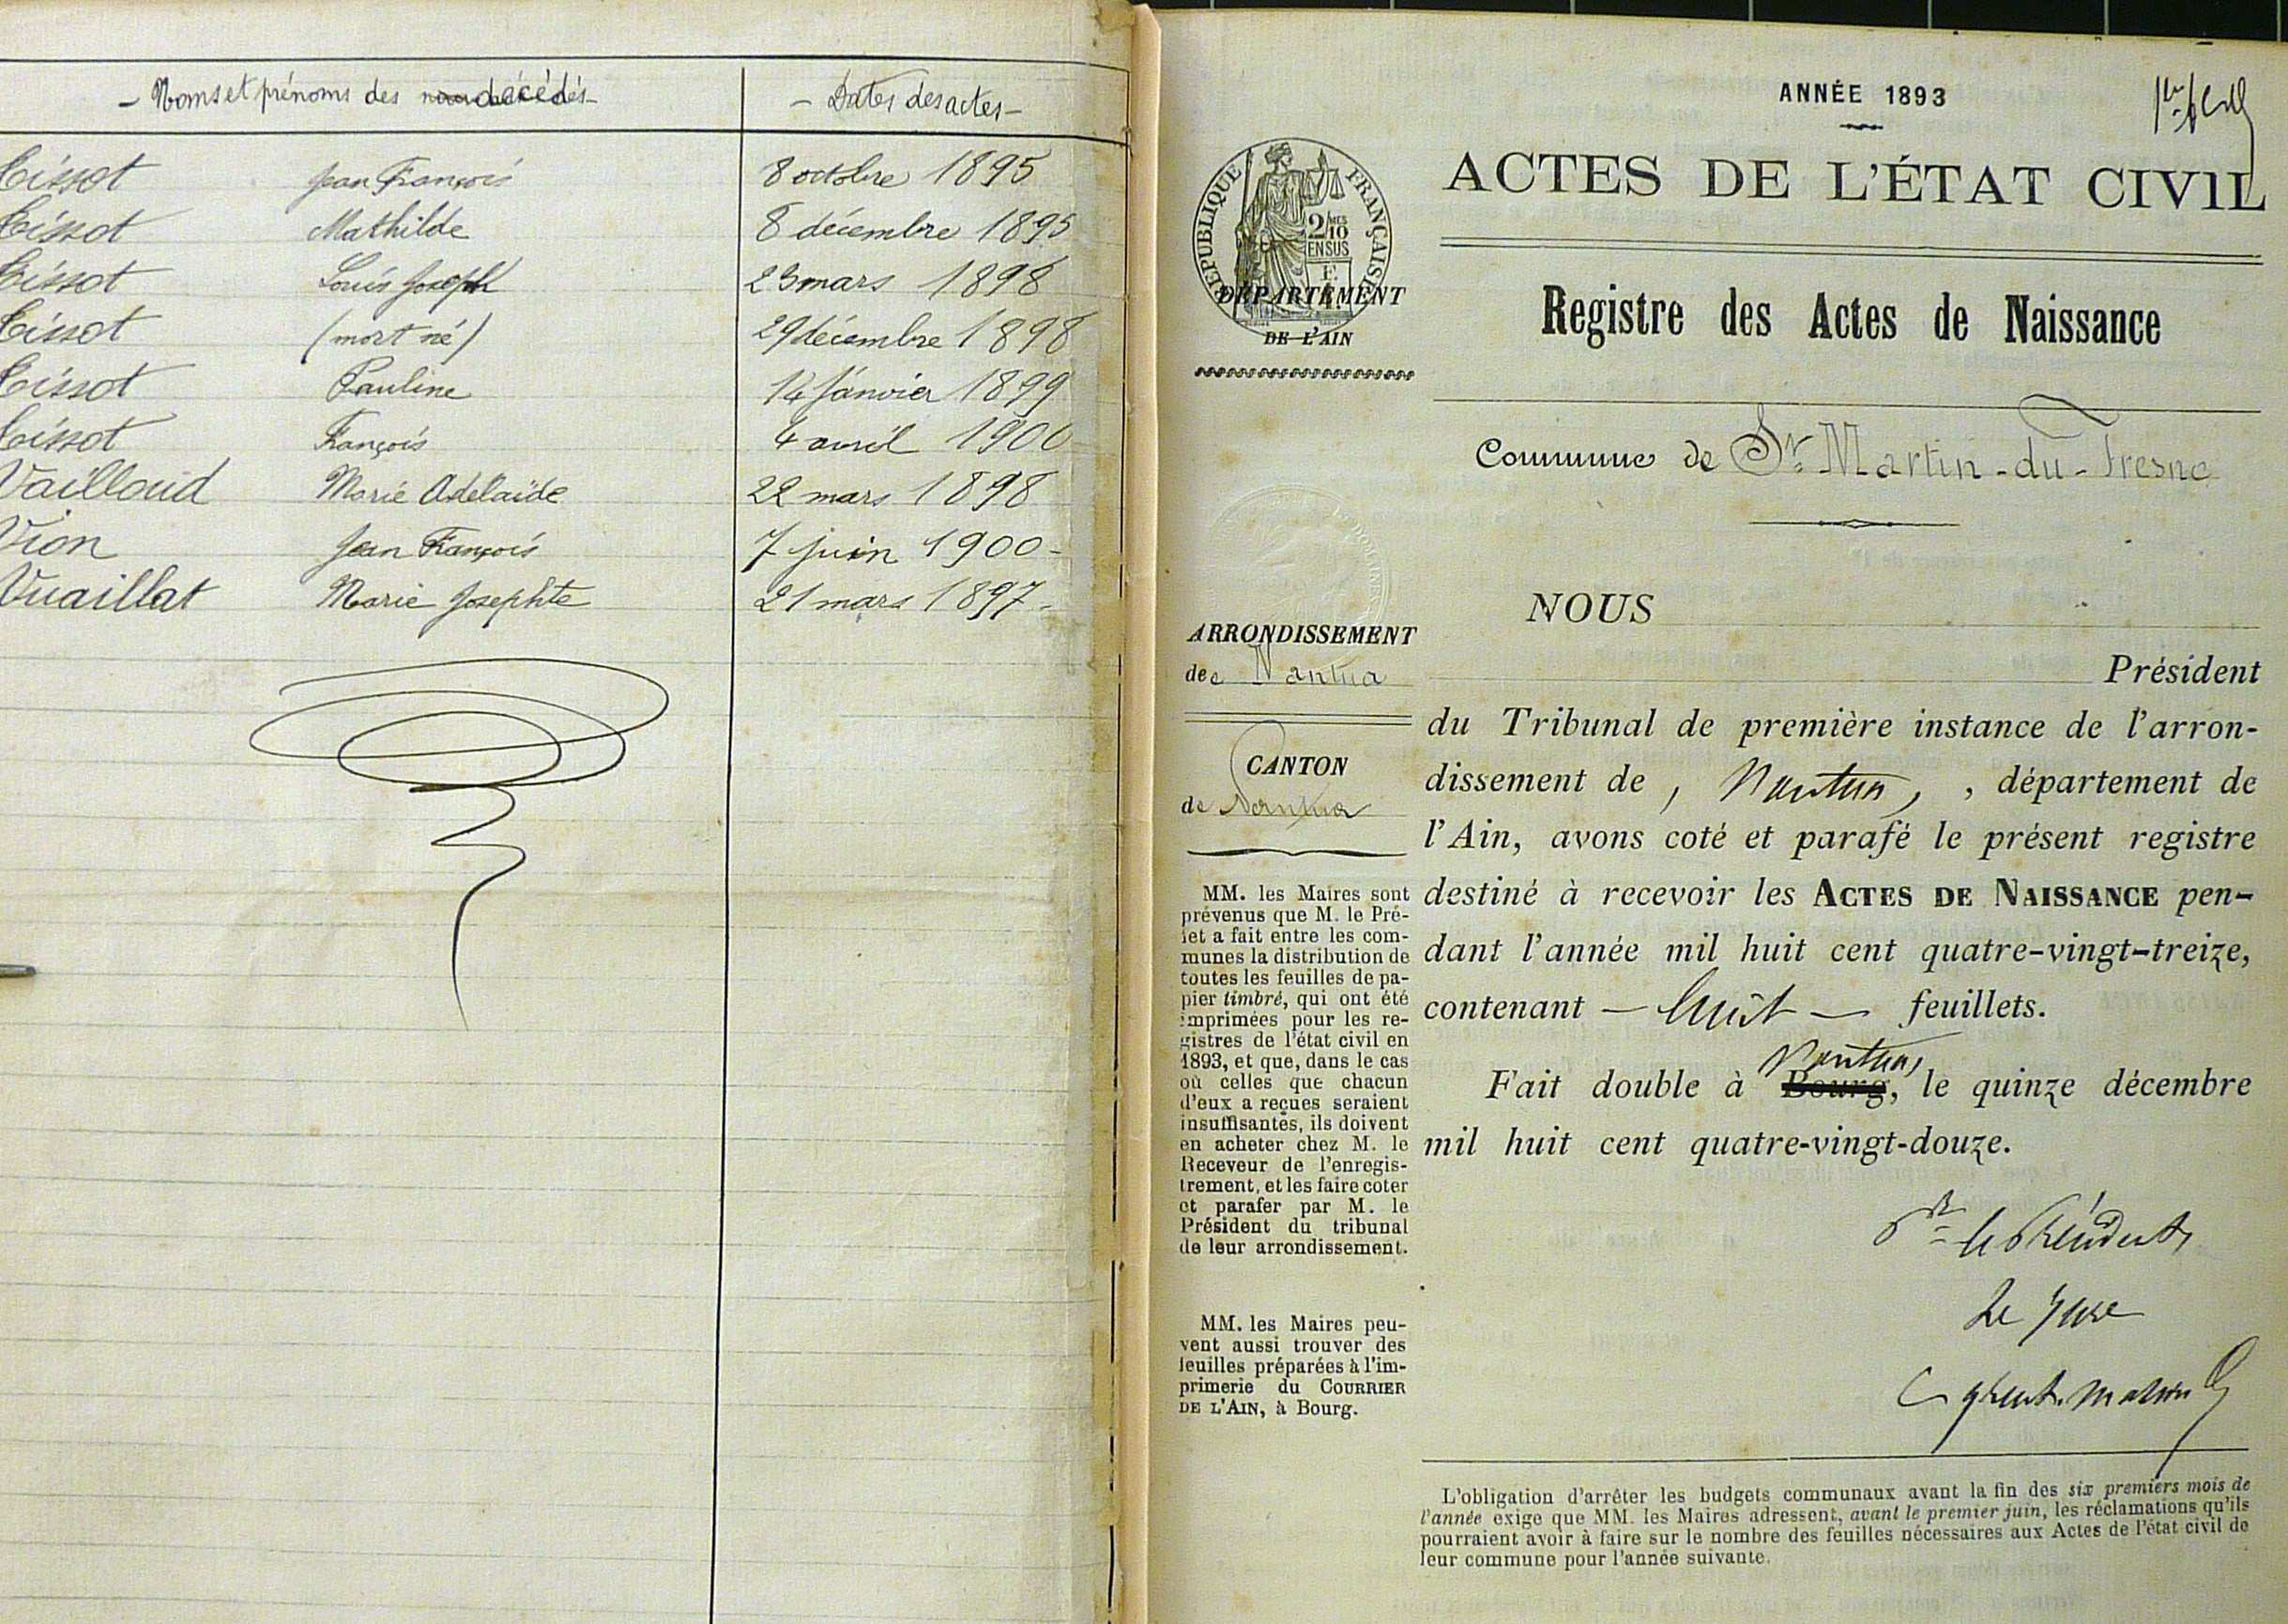 - Noms et prénoms des décédés -
- Dates des actes -
Tissot Jean François 8 octobre 1895
Tissot Mathilde 8 décembre 1895
Tissot Louis Joseph 23 mars 1898
Tissot (mort né) 29 décembre 1898
Tissot Pauline 14 janvier 1899
Tissot François 4 avril 1900
Vailloud Marie Adélaïde 22 mars 1898
Vion Jean François 7 juin 1900 -
Vuaillat Marie Josephte 21 mars 1897 -
ANNÉE 1893
ACTES DE L'ÉTAT CIVIL
RÉPUBLIQUE FRANÇAISE
2/10
EN SUS
DÉPARTEMENT
DE L'AIN
Registre des Actes de Naissance
Commune de St Martin-du-Fresne
ARRONDISSEMENT
de Nantua
CANTON
de Nantua
MM. les Maires sont
prévenus que M. le Pré-
fet a fait entre les com-
munes la distribution de
toutes les feuilles de pa-
pier timbré, qui ont été
imprimées pour les re-
gistres de l'état civil en
1893, et que, dans le cas
où celles que chacun
d'eux a reçues seraient
insuffisantes, ils doivent
en acheter chez M. le
Receveur de l'enregis-
trement, et les faire coter
et parafer par M. le
Président du tribunal
de leur arrondissement.
MM. les Maires peu-
vent aussi trouver des
feuilles préparées à l'im-
primerie du COURRIER
DE L'AIN, à Bourg.
NOUS
Président
du Tribunal de première instance de l'arron-
dissement de , Nantua, , département de
l'Ain, avons coté et parafé le présent registre
destiné à recevoir les ACTES DE NAISSANCE pen-
dant l'année mil huit cent quatre-vingt-treize,
contenant - huit - feuillets.
Nantua,
Fait double à Bourg, le quinze décembre
mil huit cent quatre-vingt-douze.
Pr le Président,
Le Juge
L'obligation d'arrêter les budgets communaux avant la fin des six premiers mois de
l'année exige que MM. les Maires adressent, avant le premier juin, les réclamations qu'ils
pourraient avoir à faire sur le nombre des feuilles nécessaires aux Actes de l'état civil de
leur commune pour l'année suivante.